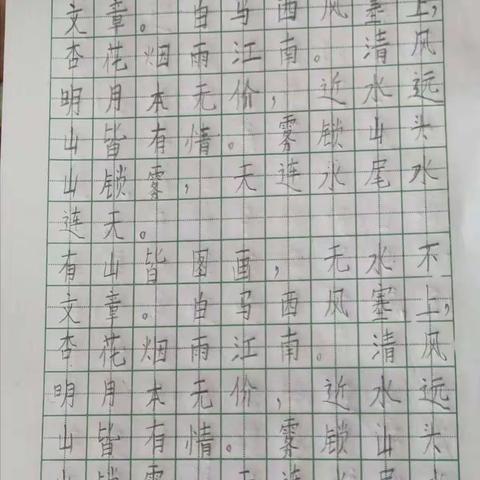 文章。白马西风塞上，
杏花烟雨江南。清风
明月本无价，近水远
山皆有情。雾锁山头
山锁雾，天连水尾水
连天。
有山皆图画，无水不
文章。白马西风塞上，
杏花烟雨江南。清风
明月本无价，近水远
山皆有情。雾锁山头
山锁雾，天连水尾水